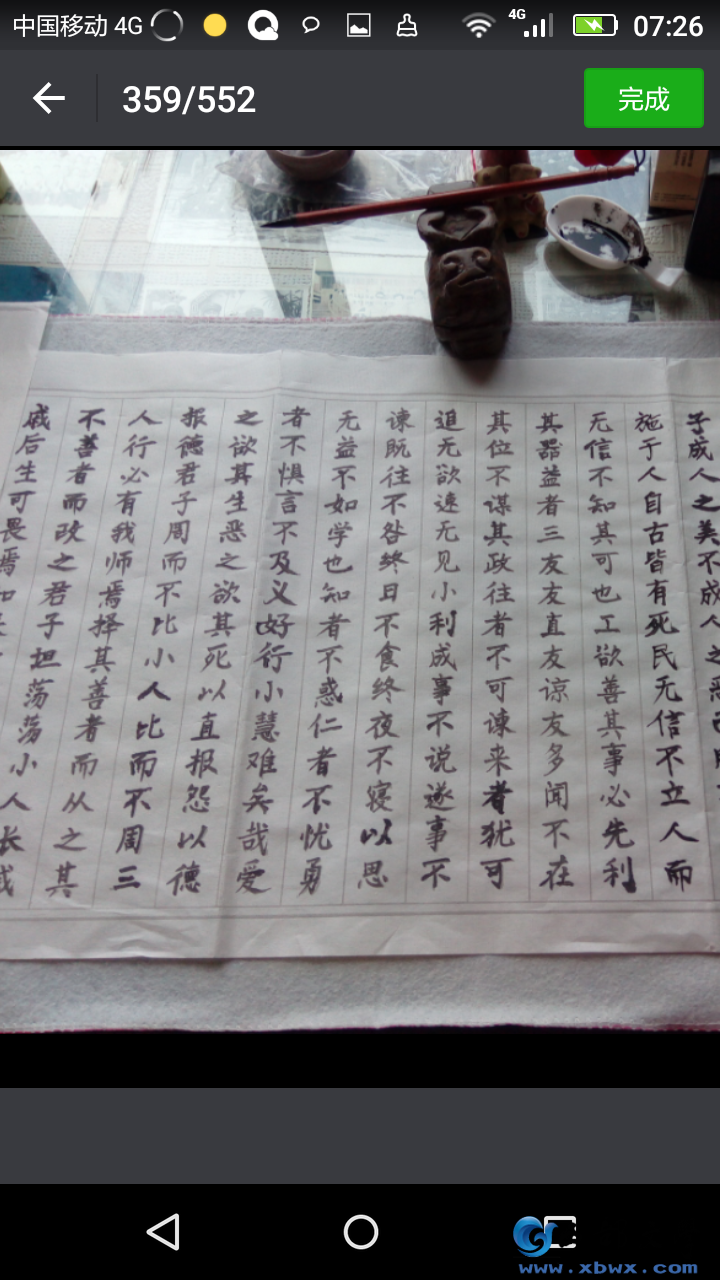 中国移动 4G 4G 07:26
359/552 完成
子成人之美不成人之恶
施于人自古皆有死民无信不立人而
无信不知其可也工欲善其事必先利
其器益者三友友直友谅友多闻不在
其位不谋其政往者不可谏来者犹可
追无欲速无见小利成事不说遂事不
谏既往不咎终日不食终夜不寝以思
无益不如学也知者不惑仁者不忧勇
者不惧言不及义好行小慧难矣哉爱
之欲其生恶之欲其死以直报怨以德
报德君子周而不比小人比而不周三
人行必有我师焉择其善者而从之其
不善者而改之君子坦荡荡小人长戚
戚后生可畏焉知
www.xbwx.com